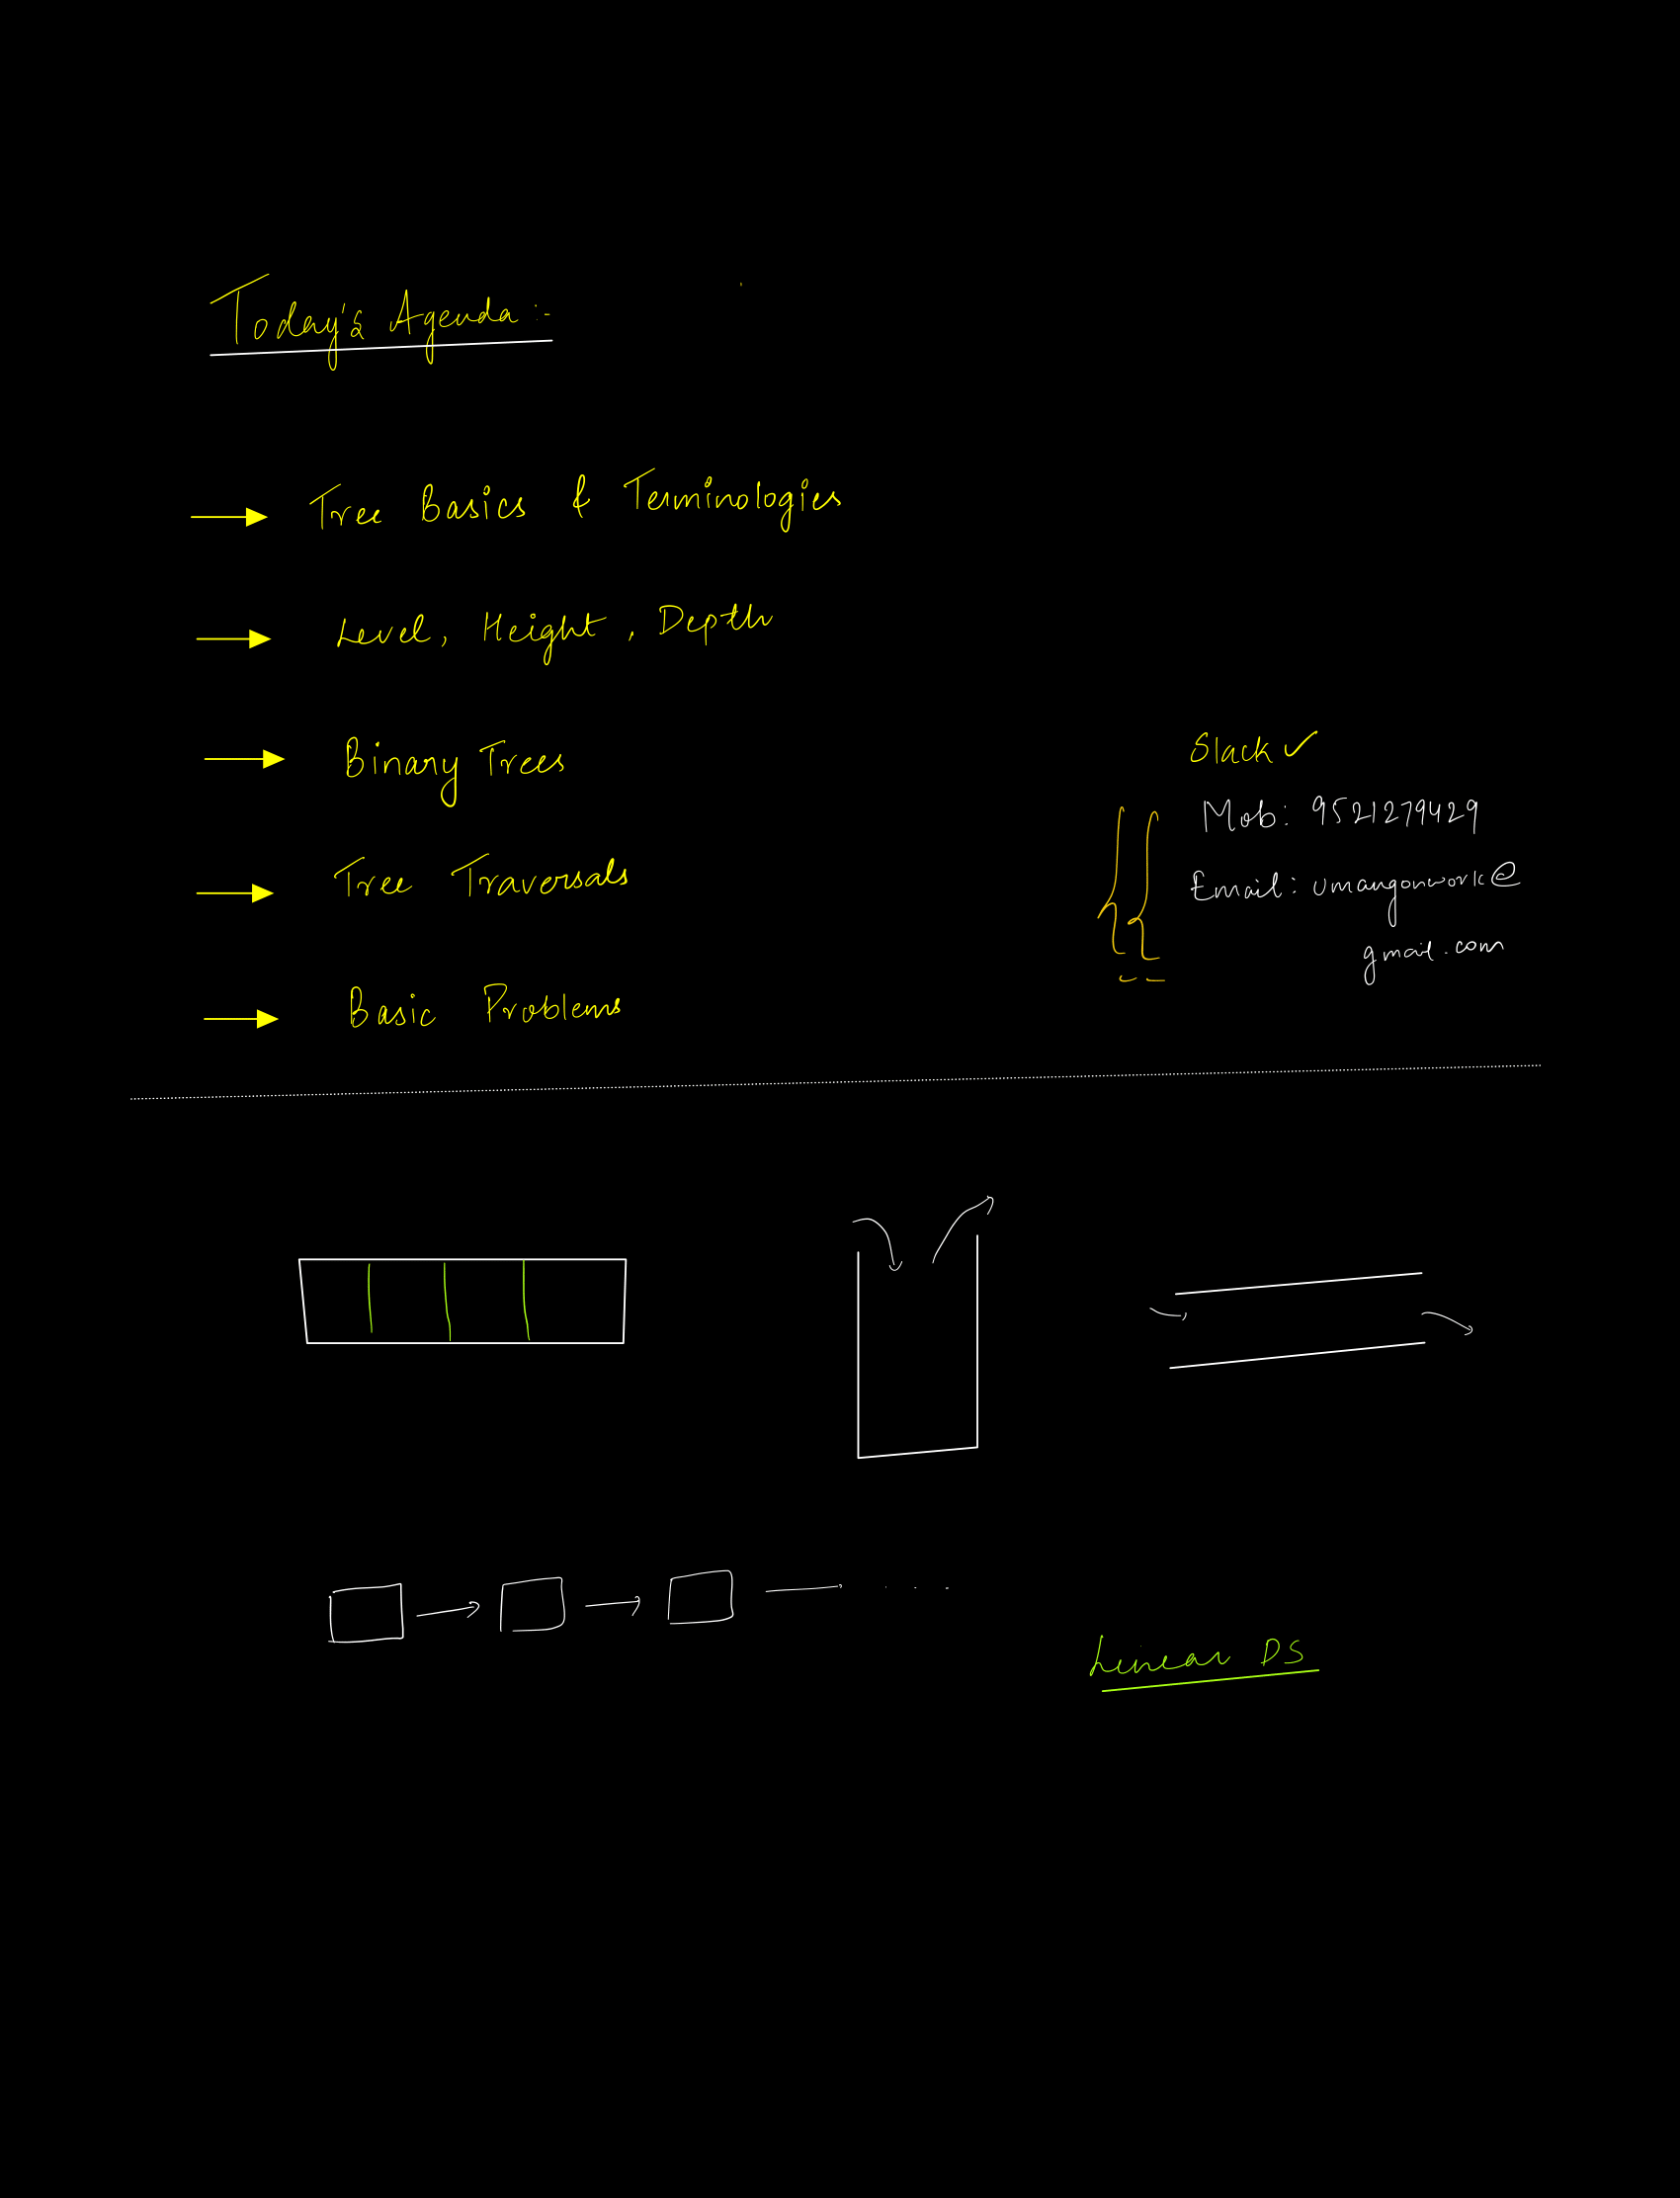 Today's Agenda :-
Tree Basics & Terminologies
Level, Height, Depth
Binary Trees
Tree Traversals
Basic Problems
Slack ✓
Mob: 9521279429
Email: umangonwork@
gmail.com
Linear DS